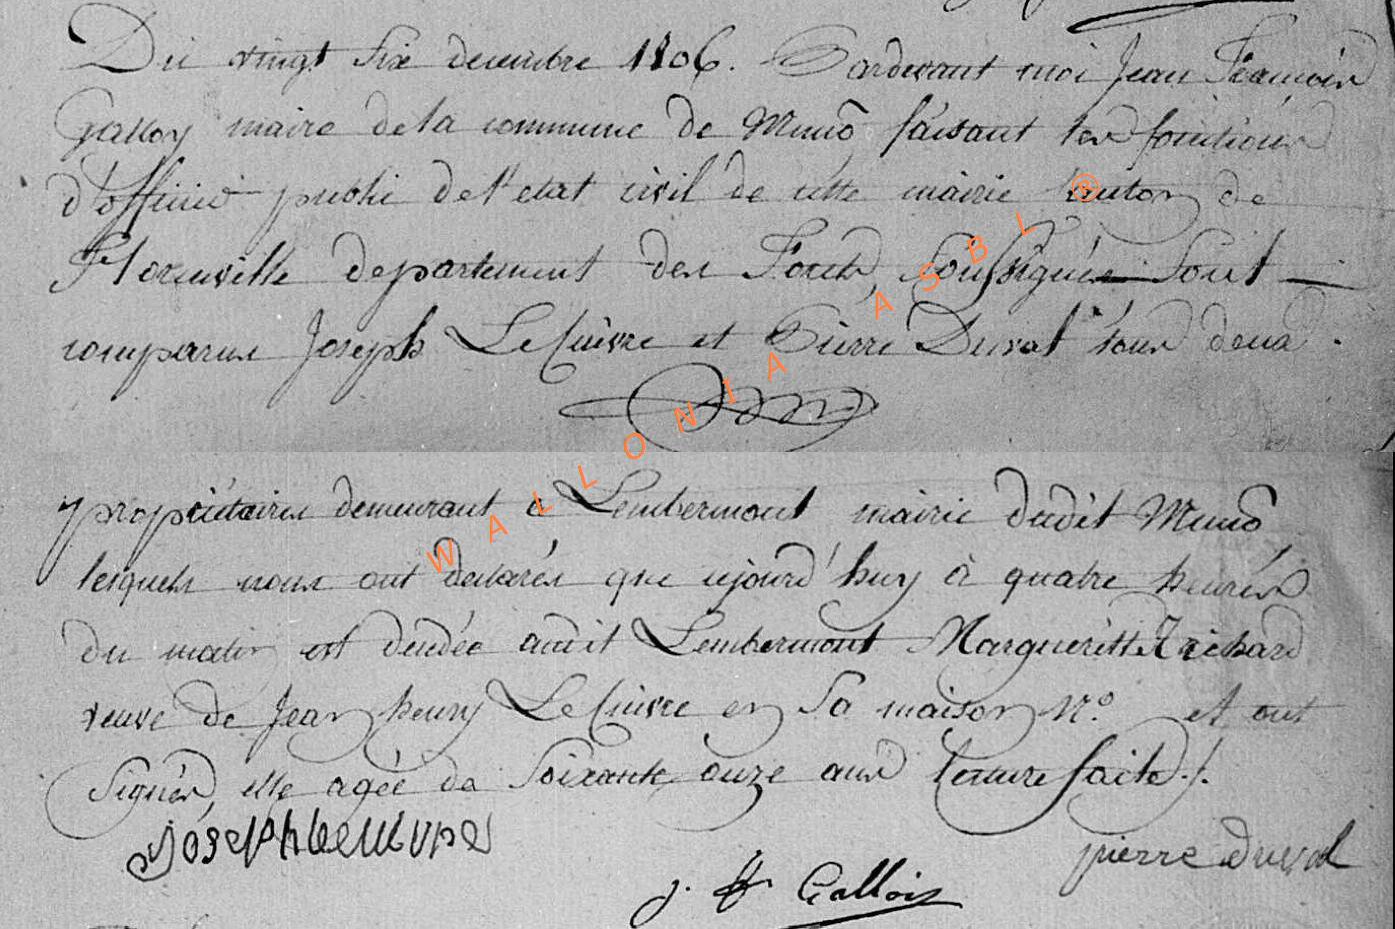 Du vingt Six decembre 1806. Pardevant moi Jean Francois
Galloy maire de la commune de Muno faisant les fonctions
d'officier public de l'etat civil de cette mairie canton de
Florenville departement des Forets, Soussignés Sont
comparus Joseph LeCuivre et Pierre Duval tous deux
propriétaires demeurant a Lembermont mairie dudit Muno
lesquels nous ont declarés que cejourd'huy à quatre heures
du matin est décédée audit Lembermont Margueritte Richard
veuve de Jean henry LeCuivre en Sa maison N.º et ont
Signés, elle agée de Soixante onze ans lecture faite ./.
Joseph leCuivre
pierre duval
j. f Gallois
WALLONIA ASBL ®